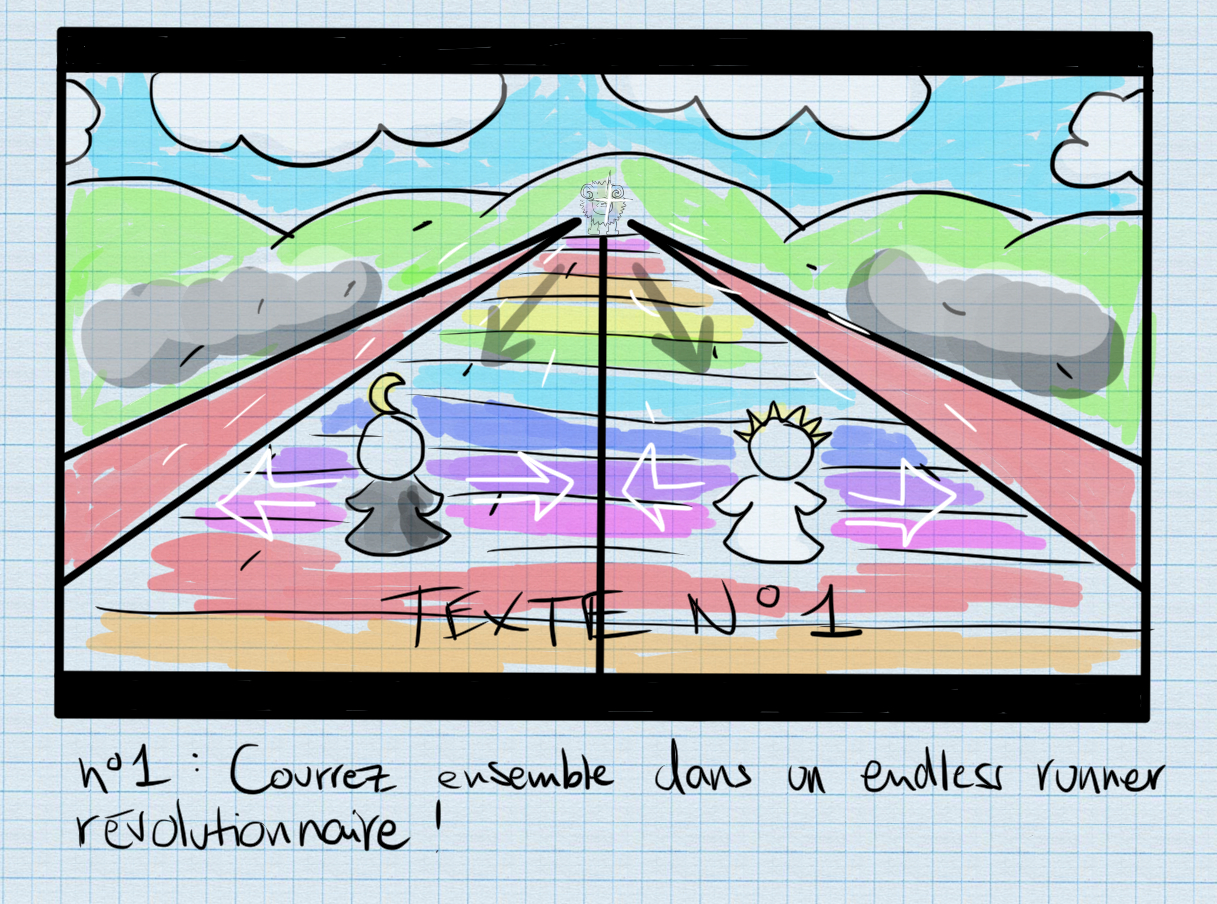 TEXTE N°1
n°1 : Courrez ensemble dans un endless runner
révolutionnaire !